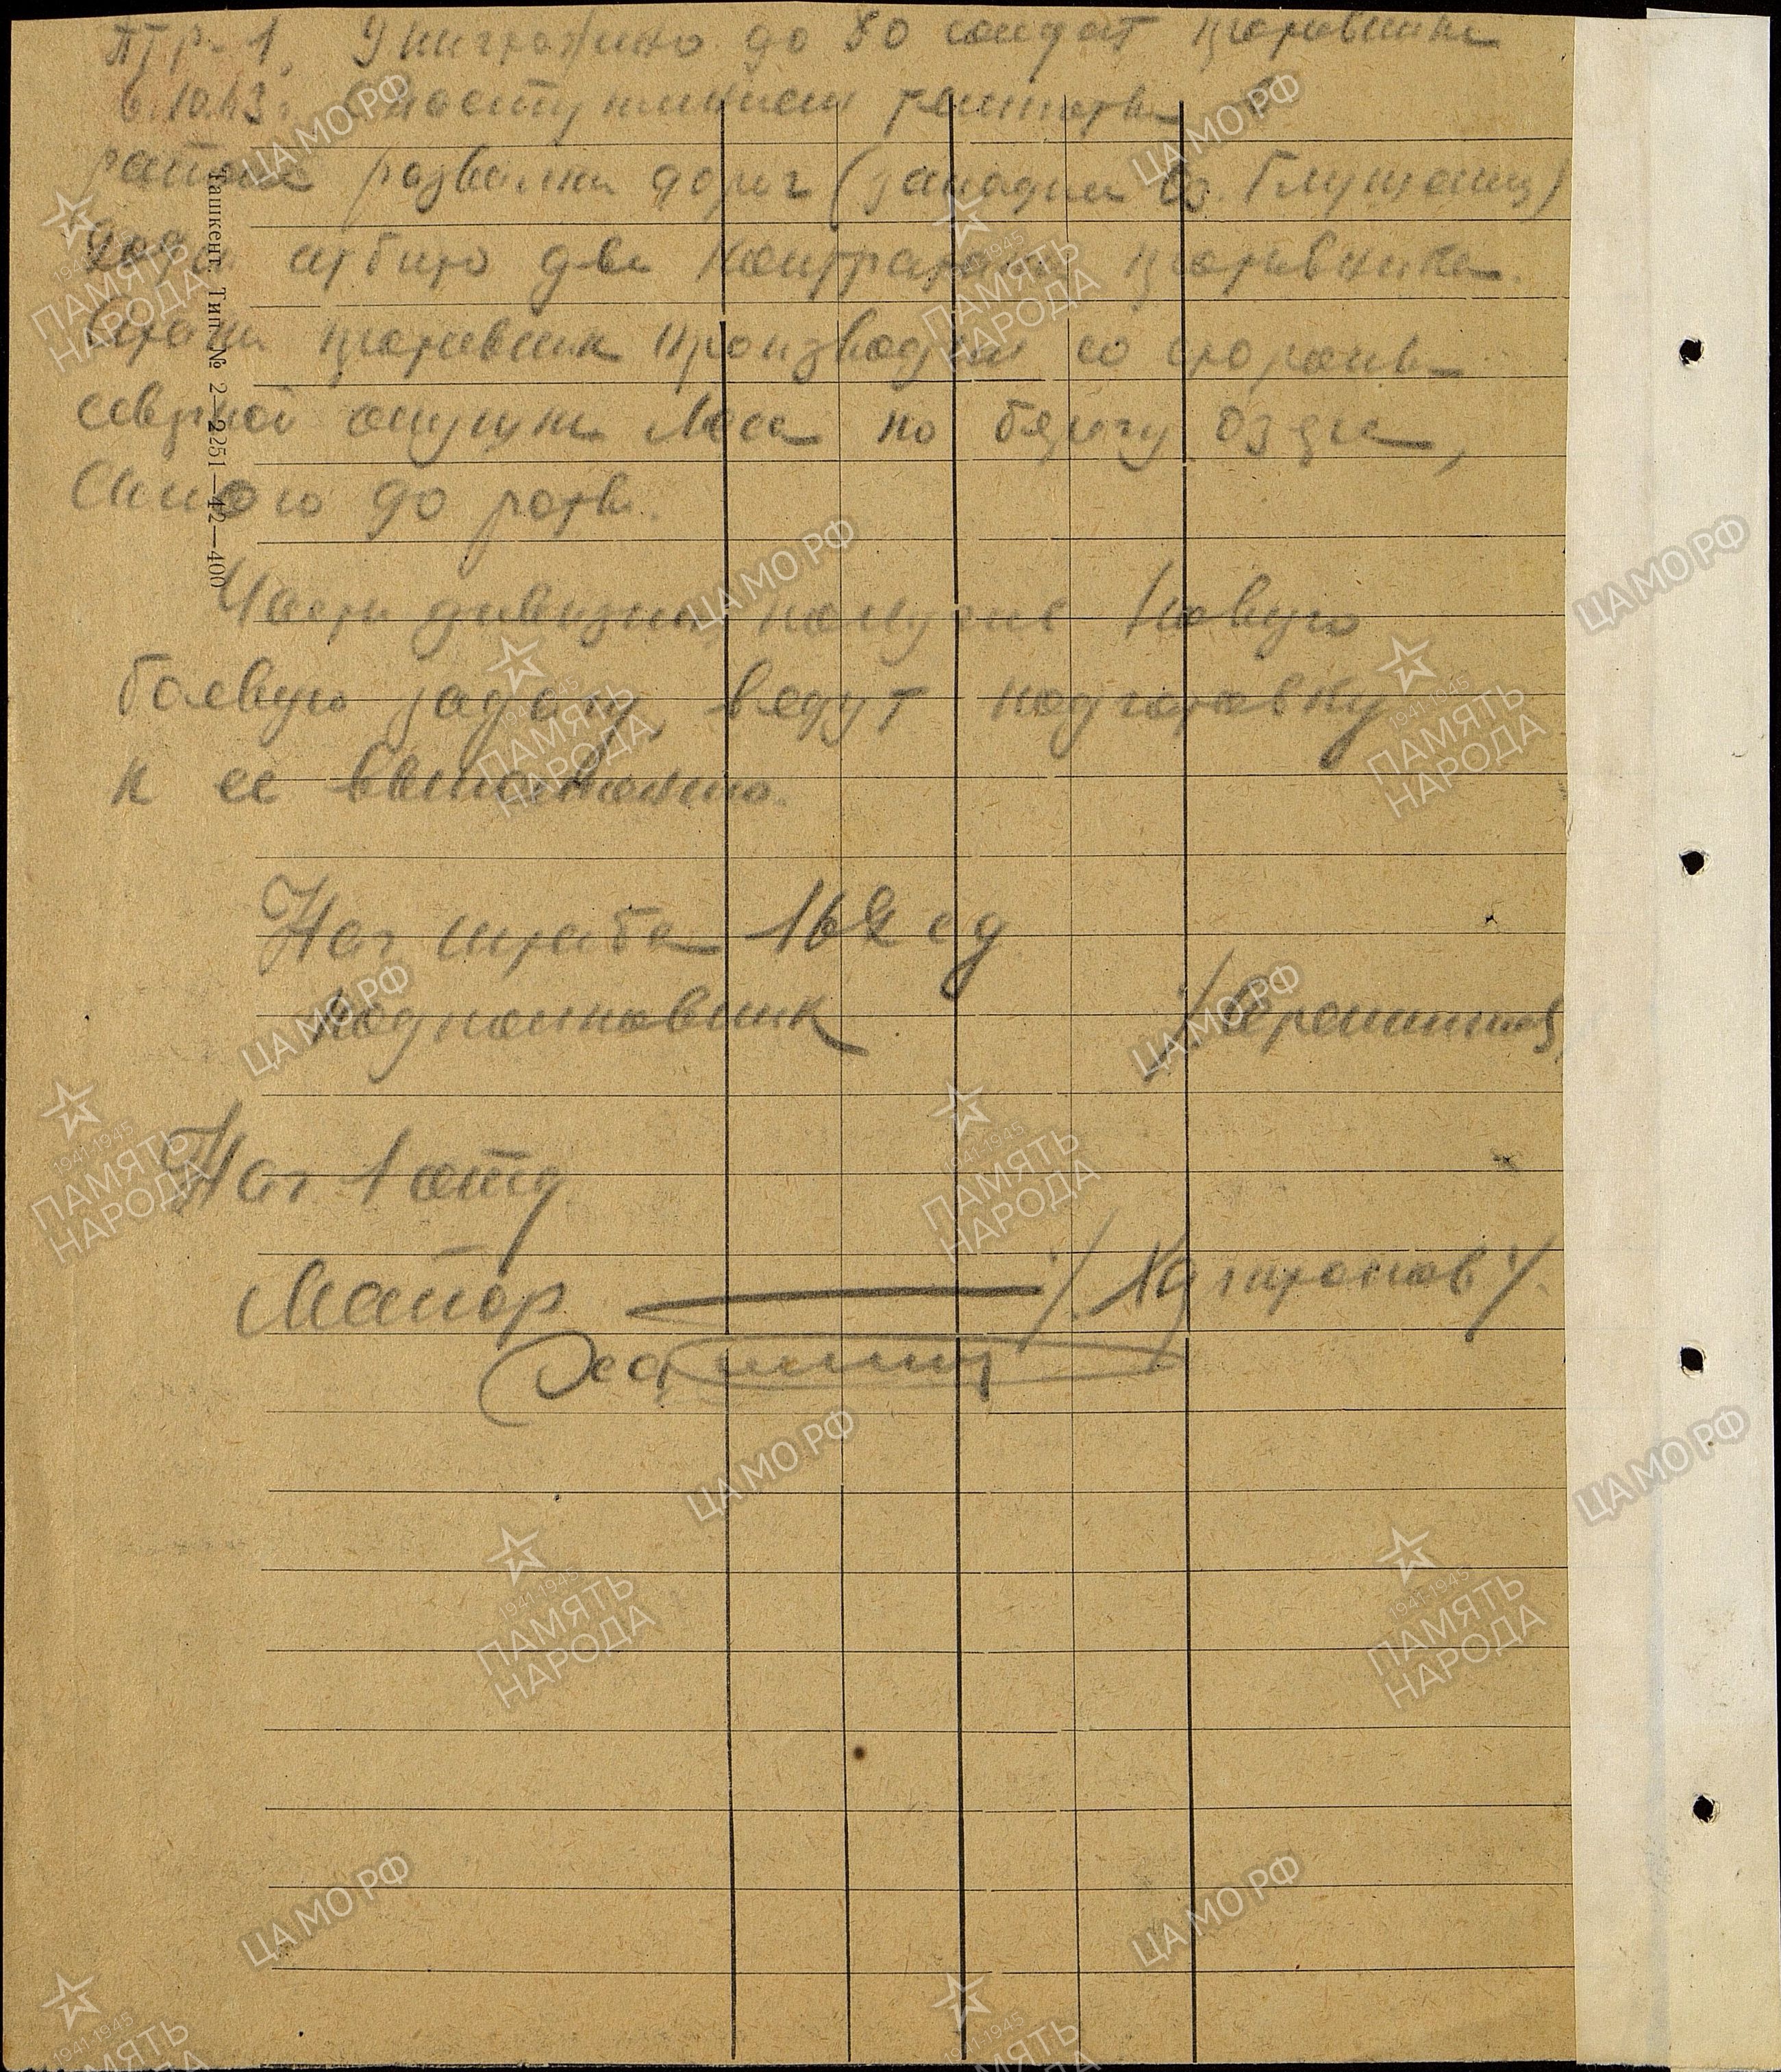 ПТР-1. Уничтожено до 80 солдат противника
6.10.43 г. С наступлением темноты в
районе развилки дорог (западнее оз. Глушец)
отбито две контратаки противника.
Атаки противник производил со стороны
северной опушки леса по берегу озера,
силою до роты.
Части дивизии получив новую
боевую задачу ведут подготовку
к ее выполнению.
Нач штаба 162 сд
подполковник
Нач 1 отд.
Майор
Ташкент. Тип. № 2—2251—42—400
ЦАМО.РФ
1941-1945
ПАМЯТЬ
НАРОДА